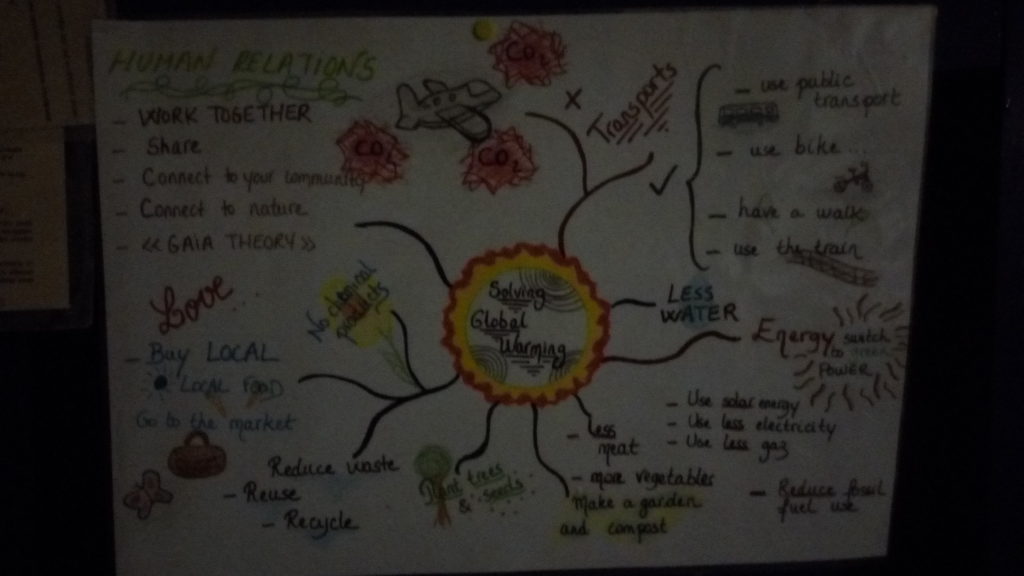 HUMAN RELATIONS
- WORK TOGETHER
- Share
- Connect to your community
- Connect to nature
- << GAIA THEORY >>
Love
CO2
CO2
CO2
X
Transports
- use public
transport
- use bike...
- have a walk
- use the train
Solving
Global
Warming
No chemical
products
LESS
WATER
Energy switch
to green
POWER
- Use solar energy
- Use less electricity
- Use less gaz
- Reduce fossil
fuel use
- Buy LOCAL
LOCAL FOOD
Go to the market
Reduce waste
- Reuse
- Recycle
Plant trees
& seeds
- less
meat
- more vegetables
Make a garden
and compost